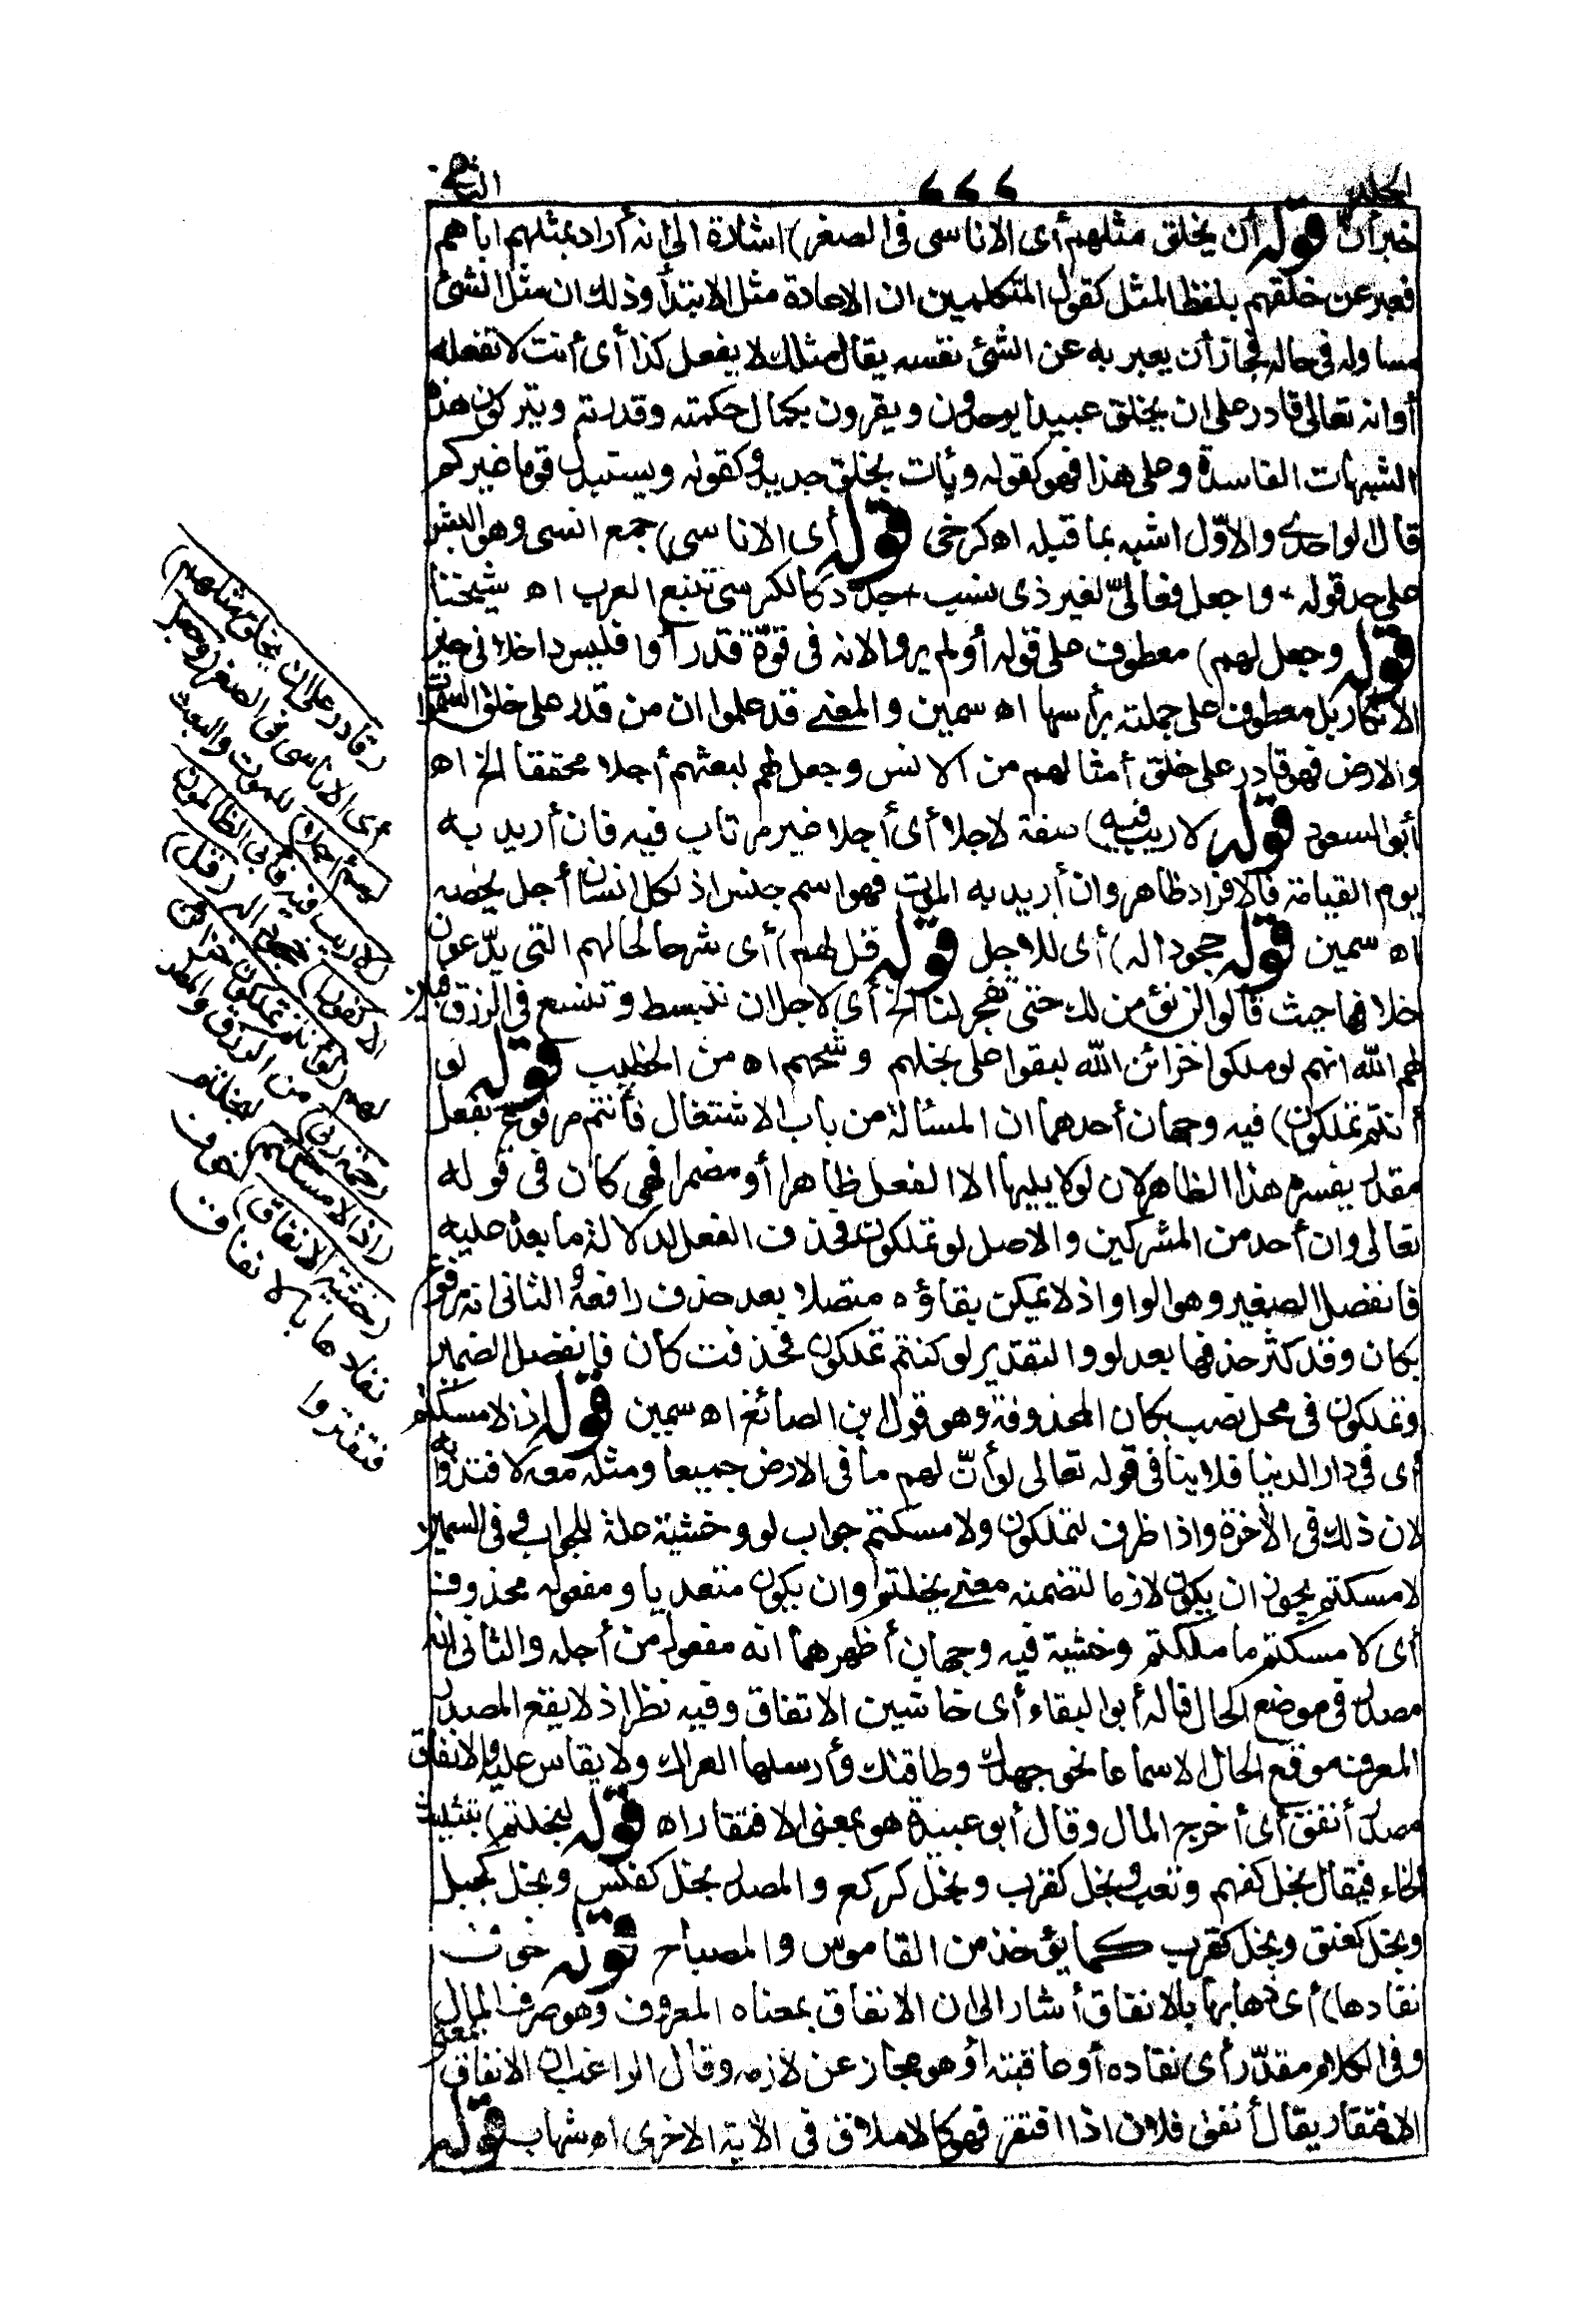 خبر أن قوله أن يخلق مثلهم أى الاناسى فى الصغر) اشارة الى انه أراد بمثلهم اياهم
فعبر عن خلقهم بلفظ المثل كقول المتكلمين ان الاعادة مثل الابتدأ وذلك ان مثل الشئ
مساوله فى حاله فجاز أن يعبر به عن الشئ نفسه يقال مثلك لا يفعل كذا أى أنت لا تفعله
أو انه تعالى قادر على ان يخلق عبيدا يوحدون ويقرون بكمال حكمته وقدرته ويتركون هذه
الشبهات الفاسدة وعلى هذا فهو كقوله ويأت بخلق جديد وكقوله ويستبدل قوما غيركم
قال الواحدى والاوّل اشبه بما قبله اه كرخى قوله أى الاناسى) جمع انسى وهو البشر
على حد قوله - واجعل فعالىّ لغير ذى نسب - جدّد كالكرسى تتبع العرب اه شيخنا
قوله وجعل لهم) معطوف على قوله أولم يروا لانه فى قوّة قد رأوا فليس داخلا فى حيز
الانكار بل معطوف على جملته برأسها اه سمين والمعنى قد علموا ان من قدر على خلق السموات
والارض فهو قادر على خلق أمثالهم من الانس وجعل لهم لبعثهم أجلا محققا الخ اه
أبو السعود قوله لا ريب فيه) صفة لاجلا أى أجلا غير مرتاب فيه فان أريد به
يوم القيامة فالافراد ظاهر وان أريد به الموت فهو اسم جنس اذ لكل انسان أجل يخصه
اه سمين قوله جحودا له) أى للاجل قوله قل لهم) أى شرحا لحالهم التى يدّعون
خلافها حيث قالوا لن نؤمن لك حتى تفجر لنا الخ أى لاجل ان نتبسط وتتسع فى الرزق فبين
لهم الله انهم لو ملكوا خزائن الله لبقوا على بخلهم وشحهم اه من الخطيب قوله لو
أنتم تملكون) فيه وجهان أحدهما ان المسئالة من باب الاشتغال فأنتم مرفوع بفعل
مقدر يفسره هذا الظاهر لان لو لا يليها الا الفعل ظاهرا أو مضمرا فهى كان فى قوله
تعالى وان أحد من المشركين والاصل لو تملكون فحذف الفعل لدلالة ما بعده عليه
فانفصل الضمير وهو الواو اذ لا يمكن بقاؤه متصلا بعد حذف رافعه والثانى انه مرفوع
بكان وقد كثر حذفها بعد لو والتقدير لو كنتم تملكون فحذفت كان فانفصل الضمير
وتملكون فى محل نصب بكان المحذوفة وهو قول ابن الصائغ اه سمين قوله اذ لا مسكتم
أى فى دار الدنيا فلا ينافى قوله تعالى لو أنّ لهم ما فى الارض جميعا ومثله معه لافتدوا به
لان ذلك فى الآخرة واذا ظرف لتملكون ولا مسكتم جواب لو وخشية علة للجواب وفى السمين
لا مسكتم يجوز ان يكون لازما لتضمنه معنى بخلتم وان يكون متعديا ومفعوله محذوف
أى لا مسكتم ما ملكتم وخشية فيه وجهان أظهرهما انه مفعول من أجله والثانى انه
مصدر فى موضع الحال قاله أبو البقاء أى خاشين الانفاق وفيه نظر اذ لا يقع المصدر
المعرفة موقع الحال الا سماعا نحو جهدك وطاقتك وأرسلها العراك ولا يقاس عليه والانفاق
مصدر أنفق أى أخرج المال وقال أبو عبيدة هو بمعنى الافتقار اه قوله لبخلتم) بتثليث
الخاء فيقال بخل كفهم وتعب وبخل كقرب وبخل كركع والمصدر بخل كفلس وبخل كجبل
وبخل كعنق وبخل كقرب كما يؤخذ من القاموس والمصباح قوله خوف
نفادها) أى ذهابها بالانفاق أشار الى ان الانفاق بمعناه المعروف وهو صرف المال
وفى الكلام مقدّر أى نفاده أو عاقبته أو هو مجاز عن لازمه وقال الراغب ان الانفاق بمعنى
الافتقار يقال أنفق فلان اذا افتقر فهو كالاملاق فى الآية الاخرى اه شهاب قوله
(قادر على ان يخلق مثلهم)
أى الاناسى فى الصغر (وجعل
لهم أجلا) للموت والبعث
(لا ريب فيه فأبى الظالمون
الا كفورا) جحودا له (قل)
لهم (لو أنتم تملكون خزائن
رحمة ربى) من الرزق والمطر
(اذا لامسكتم) لبخلتم
(خشية الانفاق) خوف
نفادها بالانفاق
فتفتروا